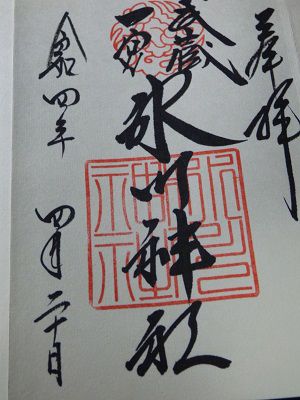 奉拝
武蔵
一宮
氷川神社
令和四年 四月二十日
氷川神社